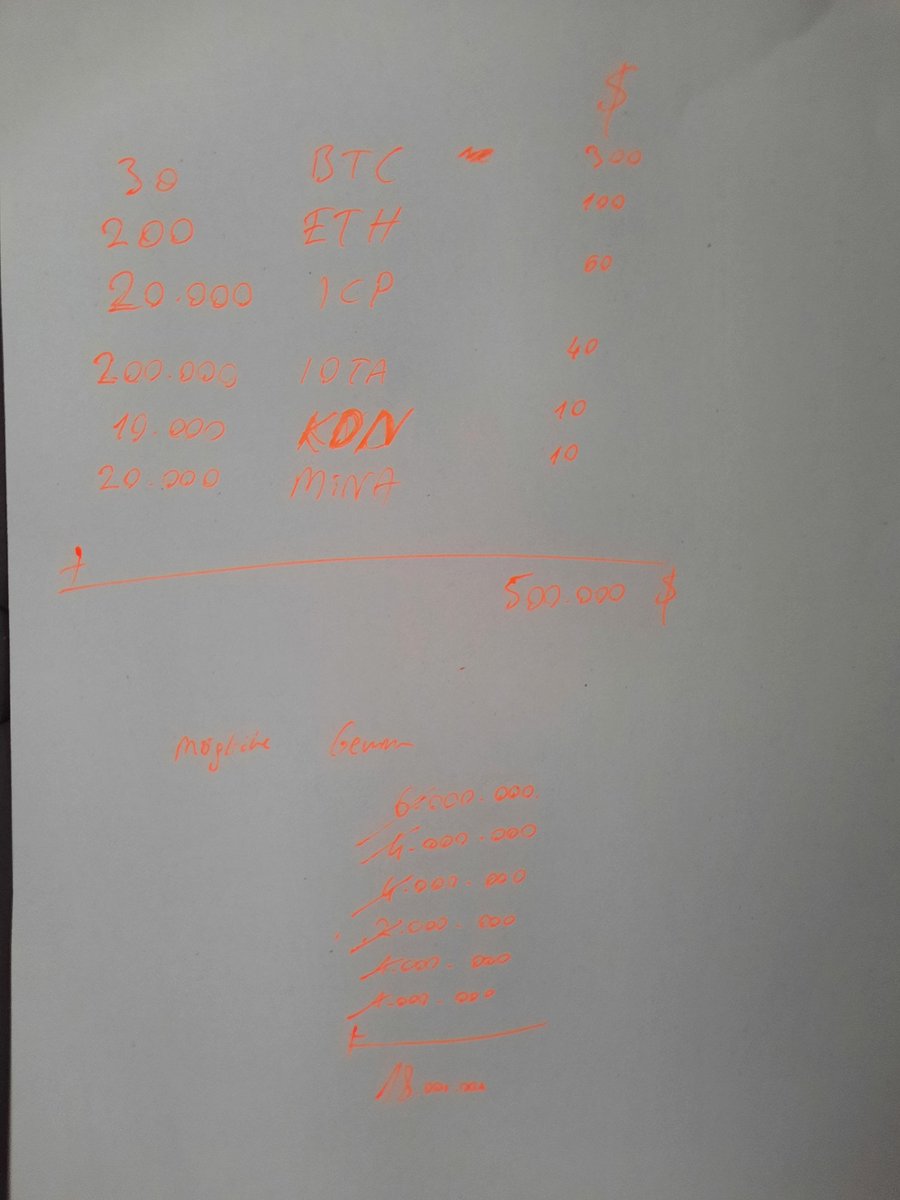 $
30 BTC 300
200 ETH 100
20.000 ICP 60
200.000 IOTA 40
19.000 KDN 10
20.000 MINA 10
+
500.000 $
Mögliche Gewinn
6.000.000.
4.000.000
4.000.000
2.000.000
1.000.000
1.000.000
+
18.000.000